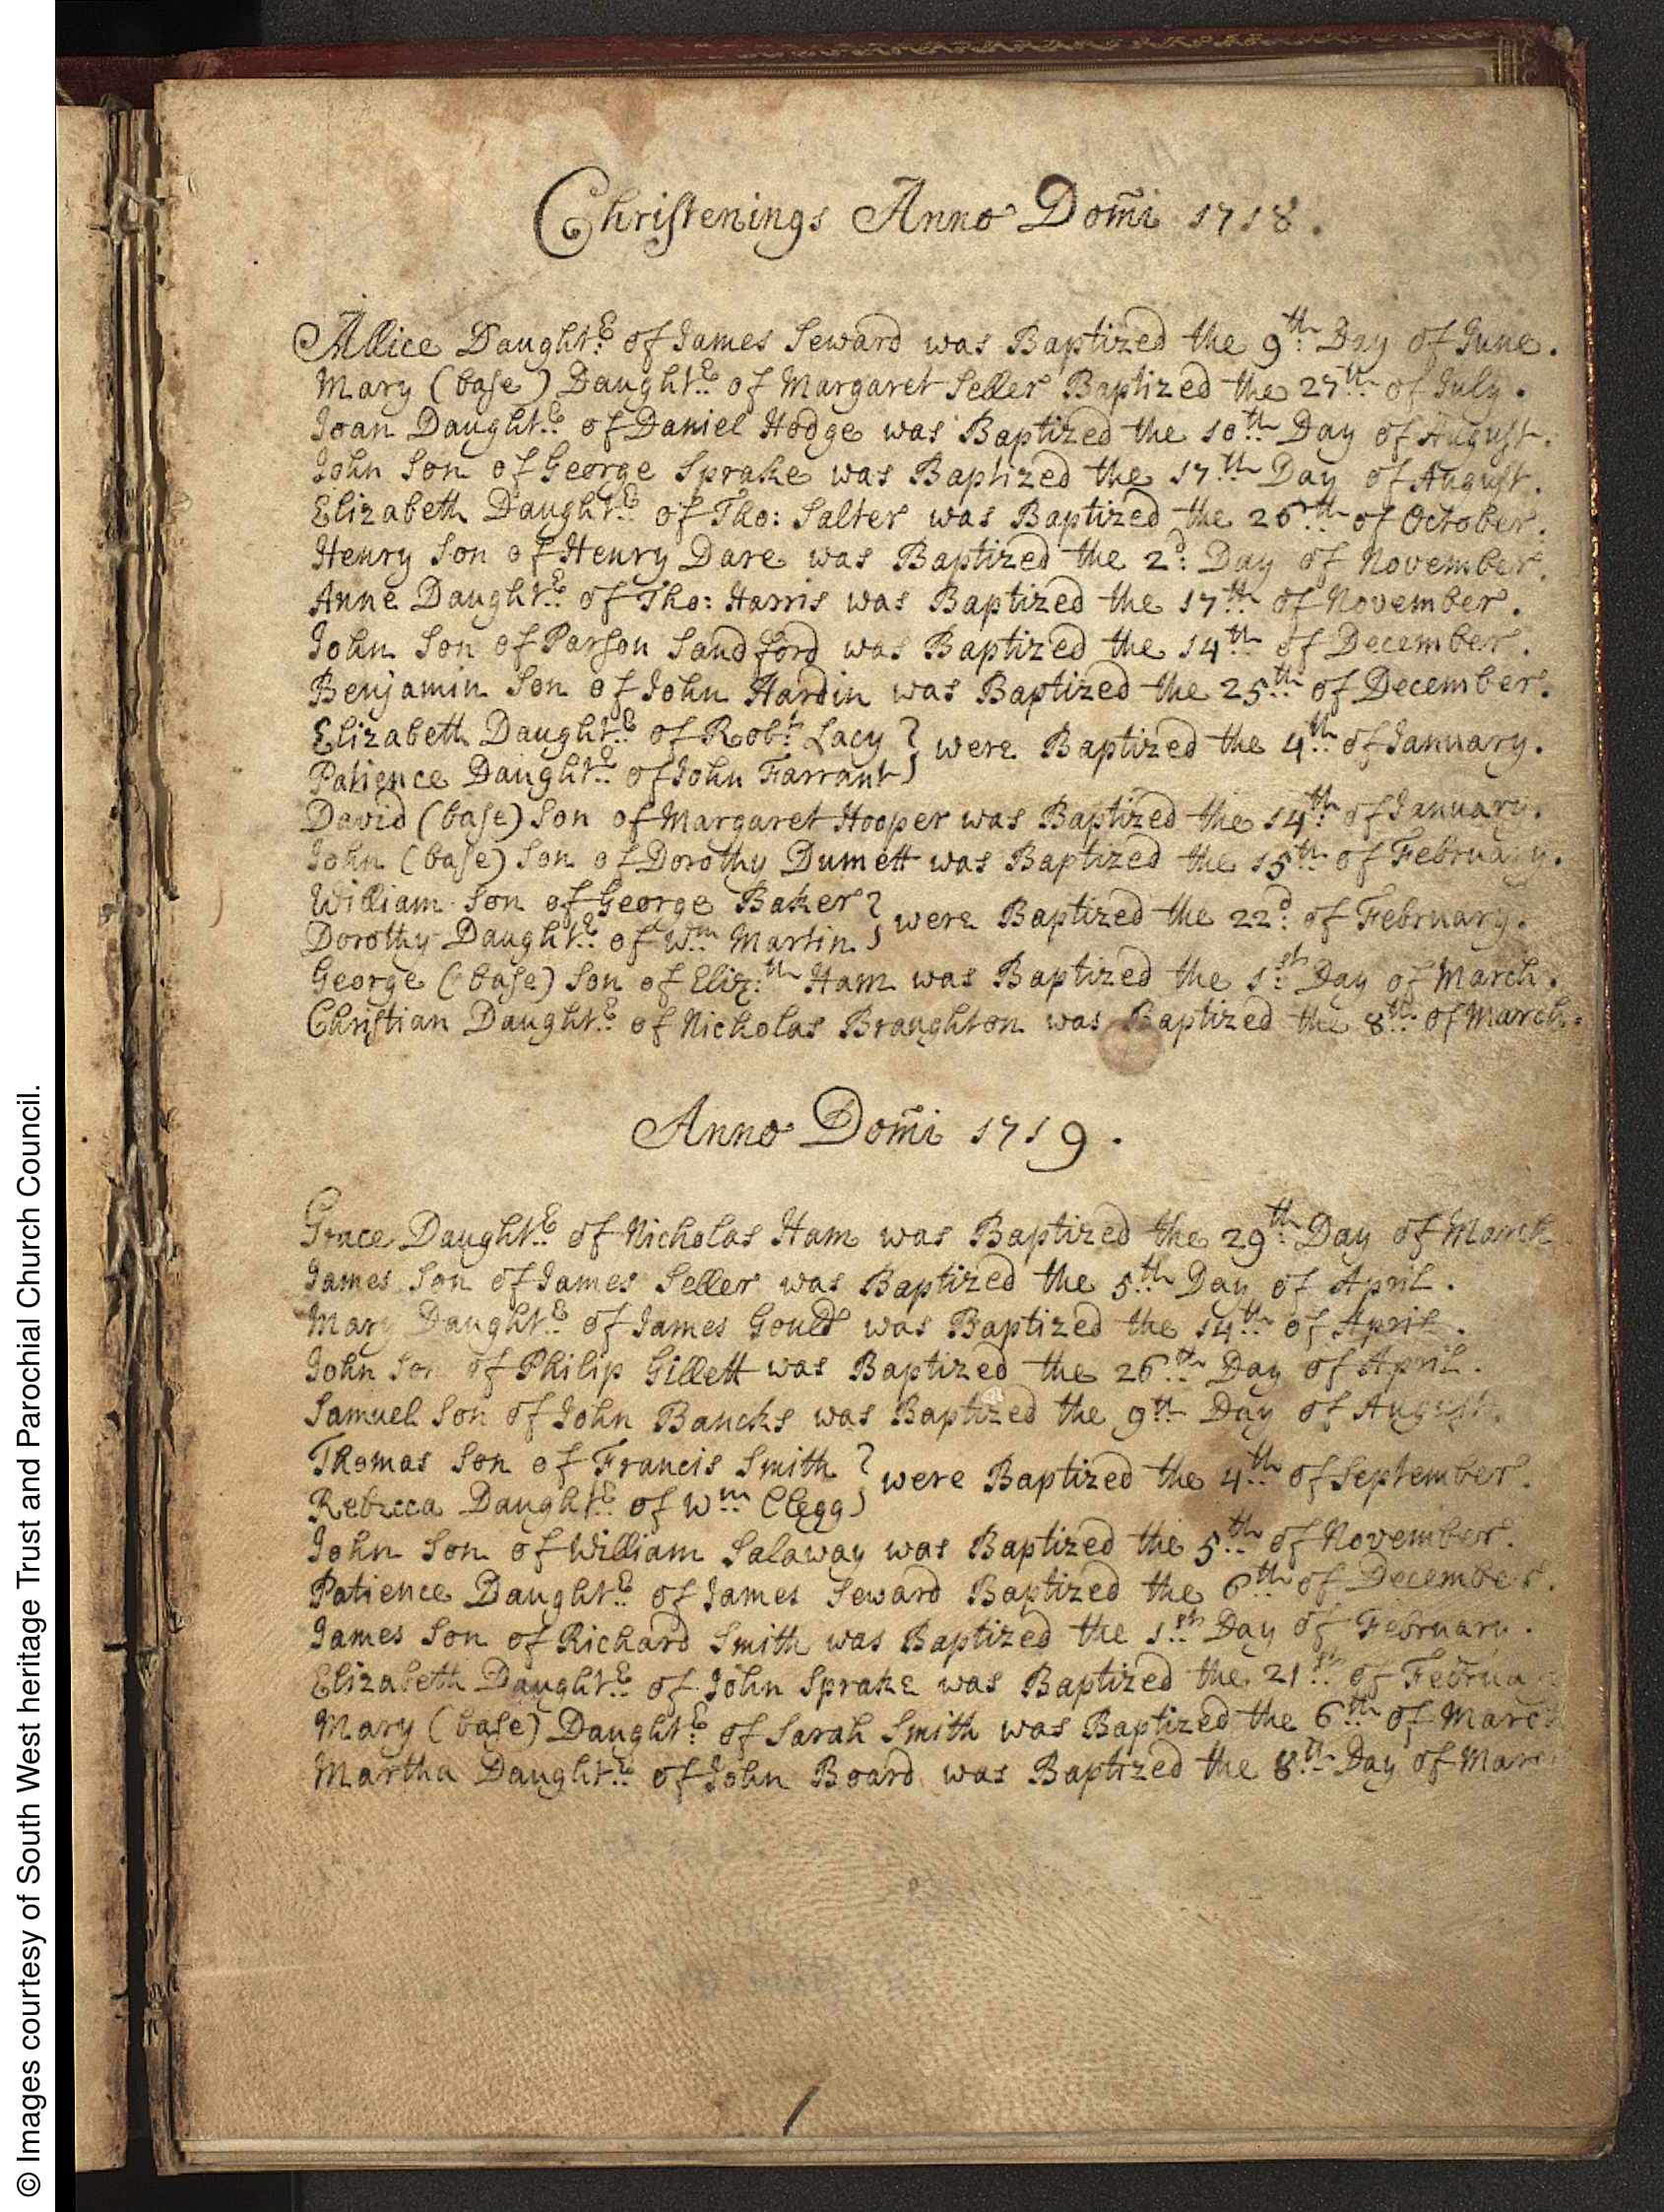 Christenings Anno Dom̄i 1718.
Allice Daught:ͬ of James Seward was Baptized the 9:th Day of June.
Mary (base) Daught:ͬ of Margaret Seller Baptized the 27:th of July.
Joan Daught:ͬ of Daniel Hodge was Baptized the 10:th Day of August.
John Son of George Sprake was Baptized the 17:th Day of August.
Elizabeth Daught:ͬ of Tho: Salter was Baptized the 26:th of October.
Henry Son of Henry Dare was Baptized the 2:d Day of November.
Anne Daught:ͬ of Tho: Harris was Baptized the 17:th of November.
John Son of Parson Sandford was Baptized the 14:th of December.
Benjamin Son of John Hardin was Baptized the 25:th of December.
Elizabeth Daught:ͬ of Rob:t Lacy
Patience Daught:ͬ of John Farrant
} were Baptized the 4:th of January.
David (base) Son of Margaret Hooper was Baptized the 14:th of January.
John (base) Son of Dorothy Dumett was Baptized the 15:th of February.
William Son of George Baker
Dorothy Daught:ͬ of W:m Martin
} were Baptized the 22:d of February.
George (base) Son of Eliz:th Ham was Baptized the 1:st Day of March.
Christian Daught:ͬ of Nicholas Braughton was Baptized the 8:th of March.
Anno Dom̄i 1719.
Grace Daught:ͬ of Nicholas Ham was Baptized the 29:th Day of March
James Son of James Seller was Baptized the 5:th Day of April.
Mary Daught:ͬ of James Gould was Baptized the 14:th of April.
John Son of Philip Gillett was Baptized the 26:th Day of April.
Samuel Son of John Bancks was Baptized the 9:th Day of August.
Thomas Son of Francis Smith
Rebecca Daught:ͬ of W:m Clegg
} were Baptized the 4:th of September.
John Son of William Salaway was Baptized the 5:th of November.
Patience Daught:ͬ of James Seward Baptized the 6:th of December.
James Son of Richard Smith was Baptized the 1:st Day of February.
Elizabeth Daught:ͬ of John Sprake was Baptized the 21:st of Februa
Mary (base) Daught:ͬ of Sarah Smith was Baptized the 6:th of March
Martha Daught:ͬ of John Board was Baptized the 8:th Day of Mar
1
© Images courtesy of South West heritage Trust and Parochial Church Council.